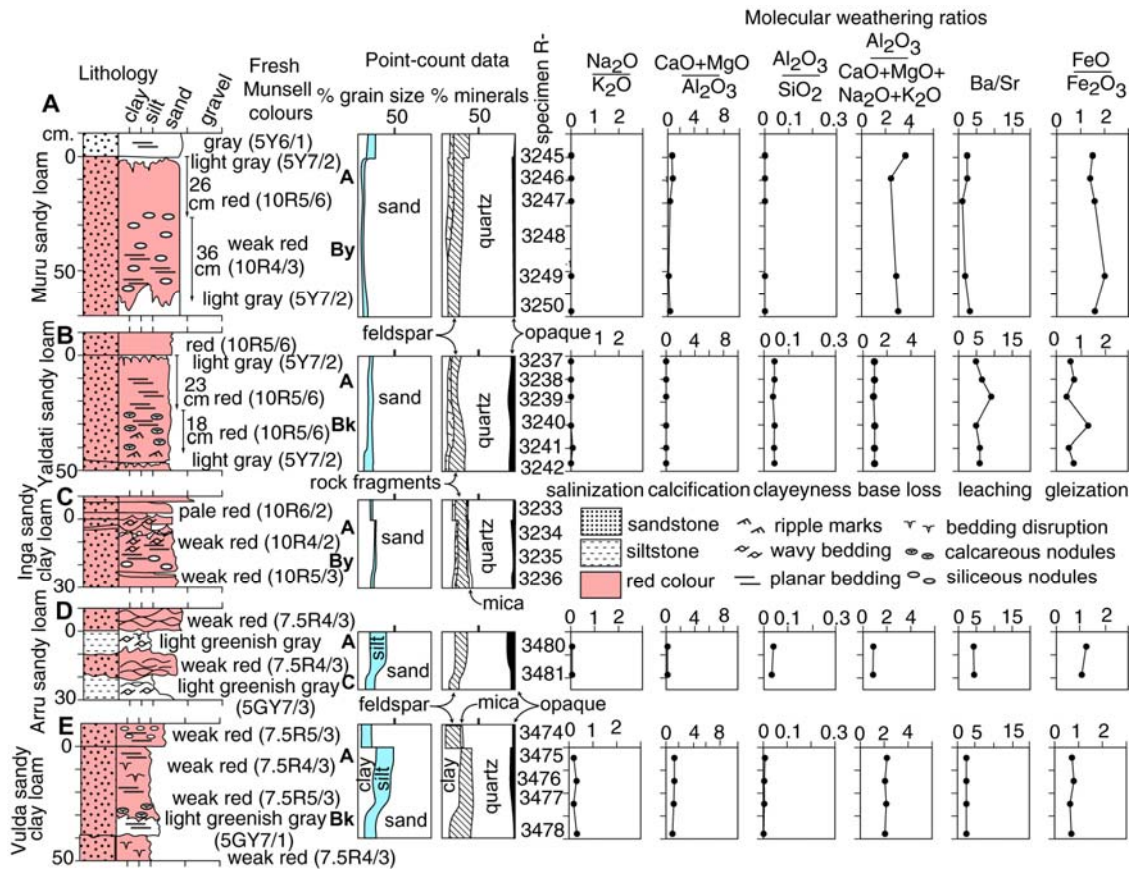 Molecular weathering ratios
Lithology
clay
silt
sand
gravel
Fresh
Munsell
colours
Point-count data
% grain size
% minerals
50
50
specimen R-
Na2O
K2O
CaO+MgO
Al2O3
Al2O3
SiO2
Al2O3
CaO+MgO+
Na2O+K2O
Ba/Sr
FeO
Fe2O3
0 1 2
0 4 8
0 0.1 0.3
0 2 4
0 5 15
0 1 2
A
cm.
0
50
Muru sandy loam
gray (5Y6/1)
light gray (5Y7/2)
26
cm
red (10R5/6)
36
cm
weak red
(10R4/3)
light gray (5Y7/2)
A
By
sand
quartz
3245
3246
3247
3248
3249
3250
feldspar
opaque
B
0
50
Yaldati sandy loam
red (10R5/6)
light gray (5Y7/2)
23
cm
red (10R5/6)
18
cm
red (10R5/6)
light gray (5Y7/2)
A
Bk
sand
quartz
3237
3238
3239
3240
3241
3242
1 2
0 4 8
0 0.1 0.3
0 2 4
0 5 15
0 1 2
rock fragments
salinization
calcification
clayeyness
base loss
leaching
gleization
C
0
30
Inga sandy
clay loam
pale red (10R6/2)
weak red (10R4/2)
weak red (10R5/3)
A
By
sand
quartz
3233
3234
3235
3236
mica
sandstone
siltstone
red colour
ripple marks
wavy bedding
planar bedding
bedding disruption
calcareous nodules
siliceous nodules
D
0
30
Arru sandy loam
weak red (7.5R4/3)
light greenish gray
weak red (7.5R4/3)
light greenish gray
(5GY7/3)
A
C
silt
sand
quartz
3480
3481
0 1 2
0 4 8
0 0.1 0.3
0 2 4
0 5 15
0 1 2
feldspar
mica
opaque
E
0
50
Vulda sandy
clay loam
weak red (7.5R5/3)
weak red (7.5R4/3)
weak red (7.5R5/3)
light greenish gray
(5GY7/1)
weak red (7.5R4/3)
A
Bk
clay
silt
sand
clay
quartz
3474
3475
3476
3477
3478
0 1 2
0 4 8
0 0.1 0.3
0 2 4
0 5 15
0 1 2